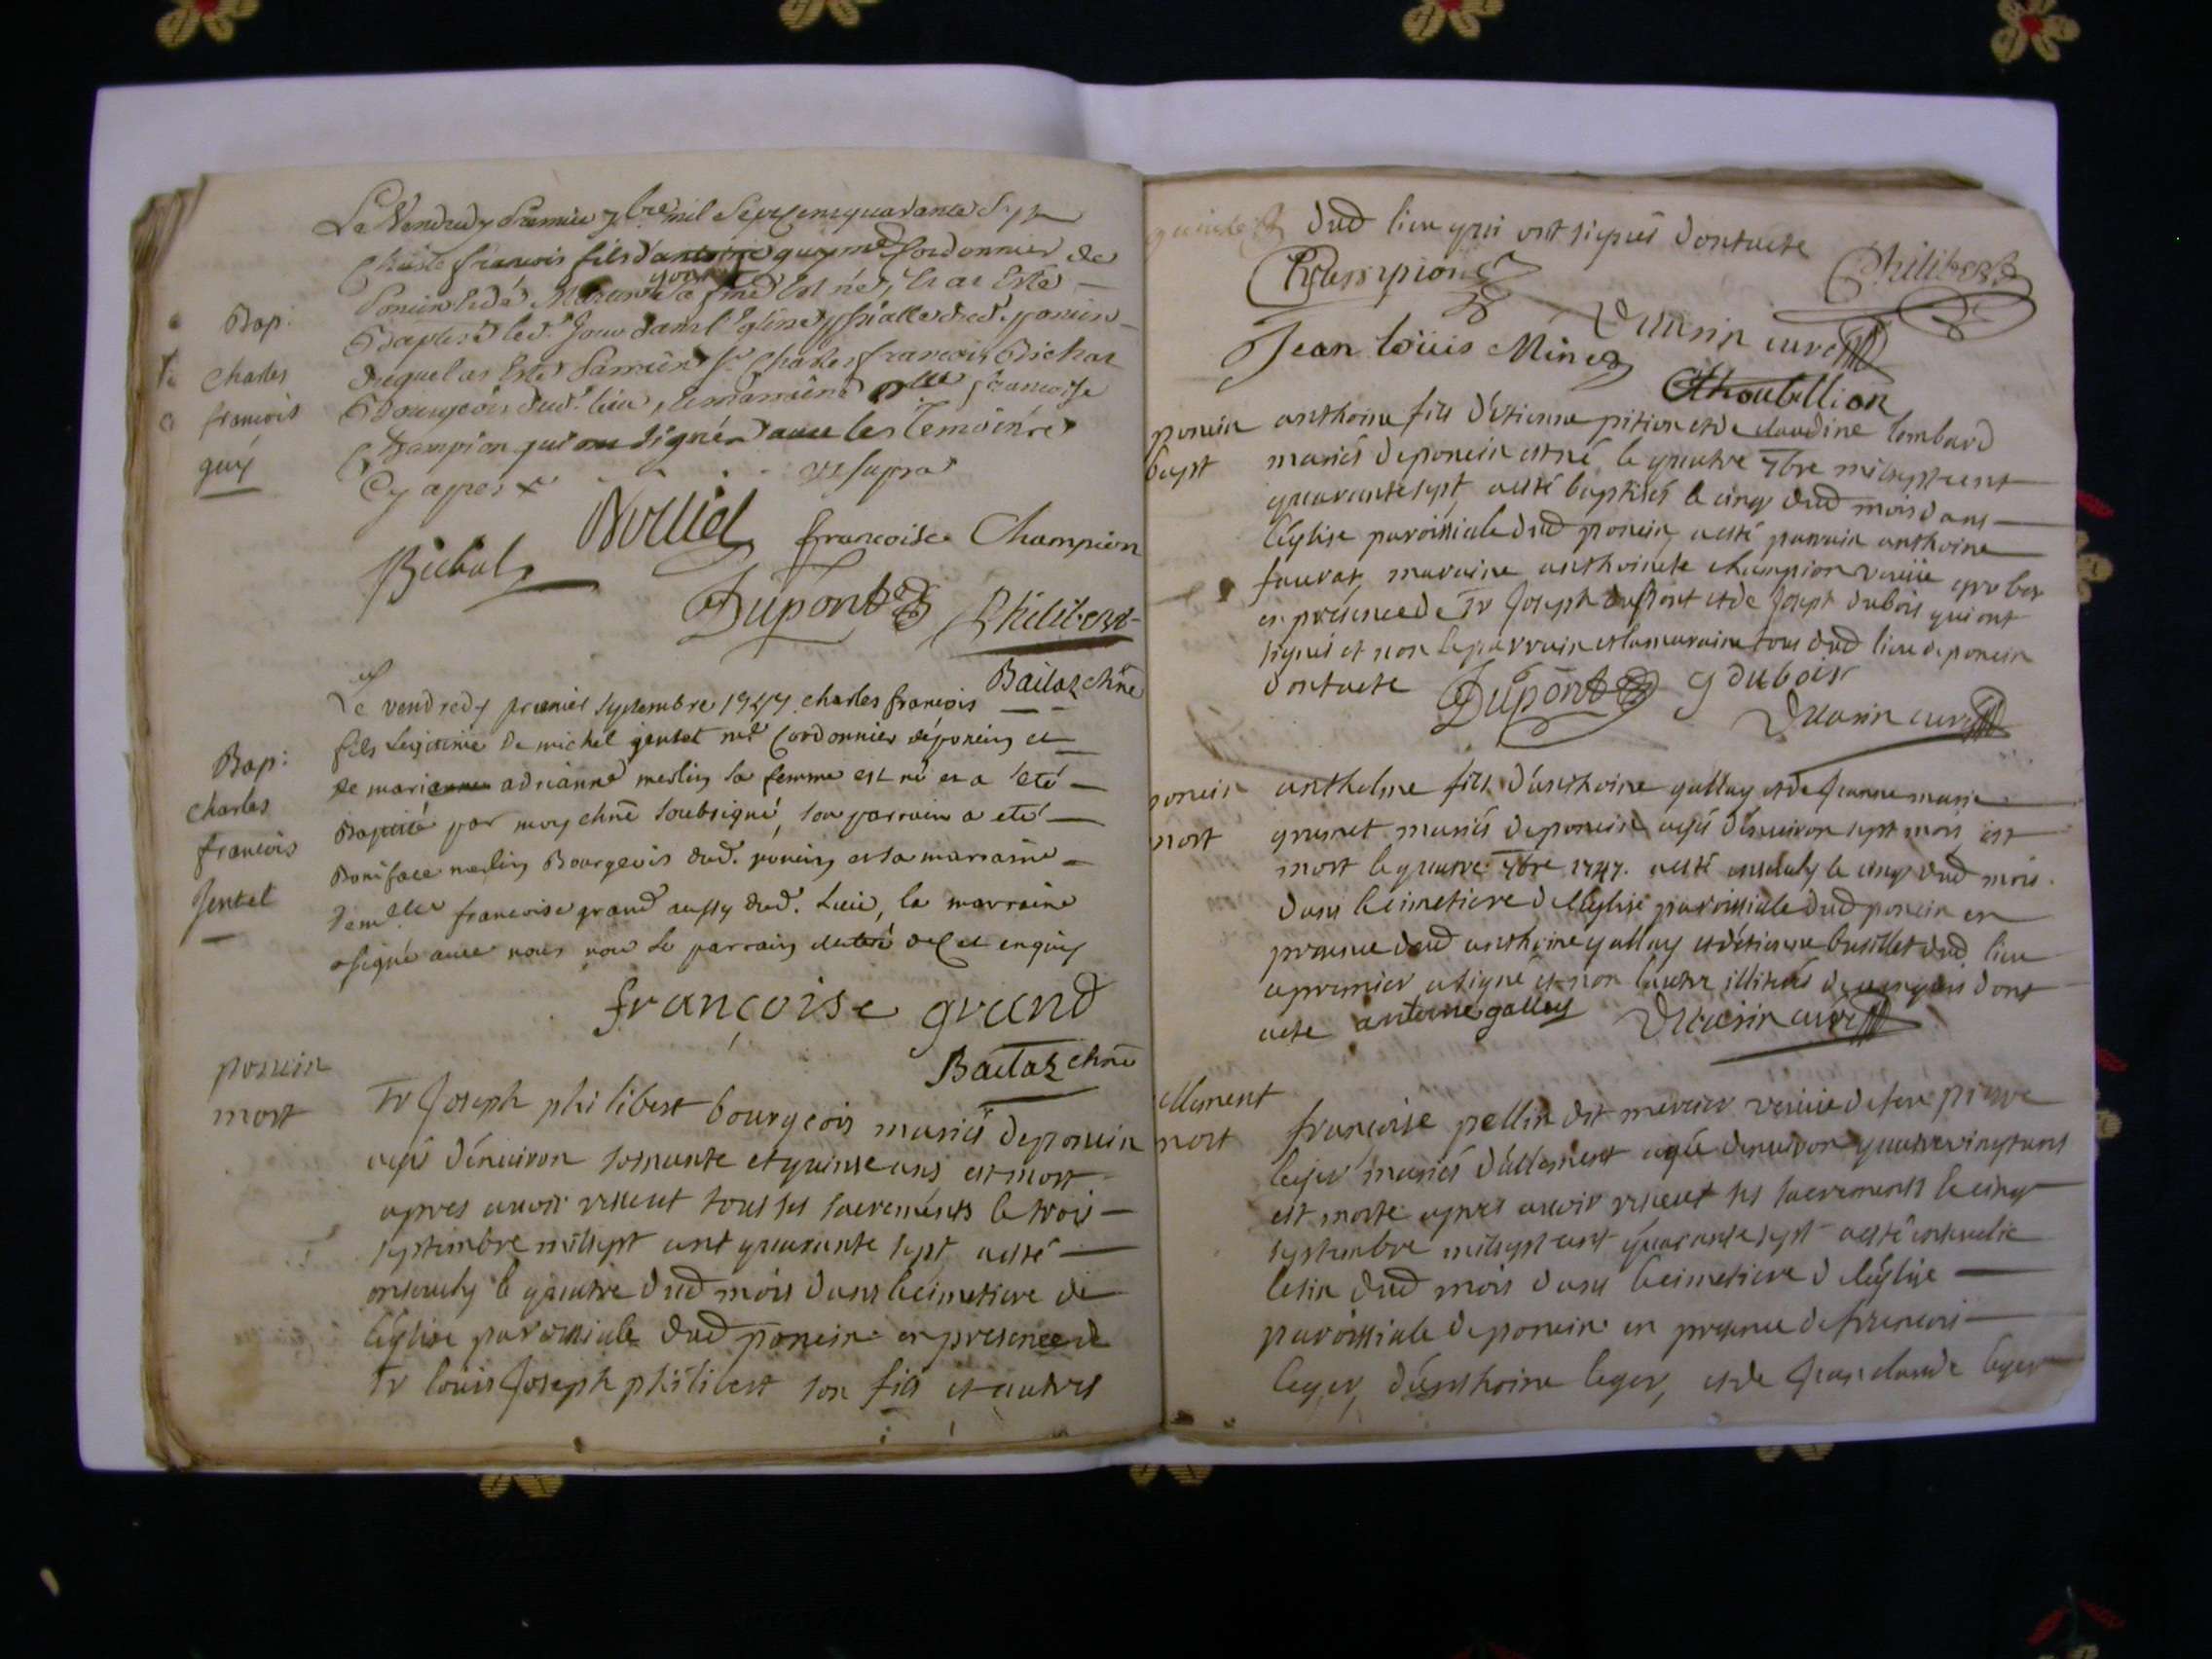 Le Vendredy Premier 7bre mil Sept Cent quarante Sept
Charle francois fils d'antoine guy md Cordonnier de
Poncin & de Sa fme Est né, & at Esté
Baptisé led. Jour dans l'Eglise dud. poncin
duquel as Esté Parrein Sr Charles francois Bichat
Bourgeois dud. lieu, la marreine Dlle francoise
Champion qui ont Signés avec les Témoins
Cy apres ut Supra
Bap:
Charles
francois
guy
françoise Champion
Dupont Philibert
Baitaz chñe
Le vendredy premier Septembre 1747 charles françois
fils Legitime de michel gentet md Cordonnier de poncin et
de marianne adrianne merlin sa femme est né et a été
Baptisé par moy chñe Soubsigné, son parrain a eté
Boniface merlin Bourgeois dud. poncin et sa marraine
demlle francoise grand aussy dud. Lieu, la marraine
a signé avec nous non le parrain de ce enquis
Bap:
charles
francois
Jentet
françoise grand
Baitaz chñe
poncin
mort
Sr Joseph philibert bourgeois mariés de poncin
agé d'environ soixante et quinse ans est mort
apres avoir reseut tous ses sacrements le trois
septembre mil sept cent quarante sept, aesté
ensevely le quatre dud mois dans le cimetiere de
l'église paroissiale dud poncin en presence de
Sr louis Joseph philibert son fils et autres
dud lieu qui ont signés dont acte
Champion Philibert
Jean loüis Minet curé
poncin
bapt
anthoine fils d'étienne pition et de claudine lombard
mariés de poncin est né le quatre 7bre mil sept cent
quarante sept, aesté baptisés le cinq dud mois dans
l'église paroissiale dud poncin, aesté parrain anthoine
favrat, maraine anthoinete champion veuve
en présence de Sr Joseph dupont et de Joseph dubois qui ont
signés et non le parrain et la maraine tous dud lieu de poncin
dont acte Dupont J dubois
curé
poncin
mort
anthelme fils d'anthoine gallay et de jeanne marie
mariés de poncin agés d'environ sept mois, est
mort le quatre 7bre 1747. aesté ensevely le cinq dud mois
dans le cimetiere de l'église paroissiale dud poncin en
presence dud anthoine gallay et d'étienne dud lieu
le premier a signé et non l'autre illitéré de ce enquis dont
acte antoine galley curé
allement
mort
françoise pellin dit mercier veuve de feu pierre
leger mariés d'allement agée d'environ quatre vingt ans
est morte apres avoir reseut ses sacrements le cinq
septembre mil sept cent quarante sept aesté ensevelie
le six dud mois dans le cimetiere de l'église
paroissiale de poncin en presence de francois
leger, d'anthoine leger, et de Jean claude leger